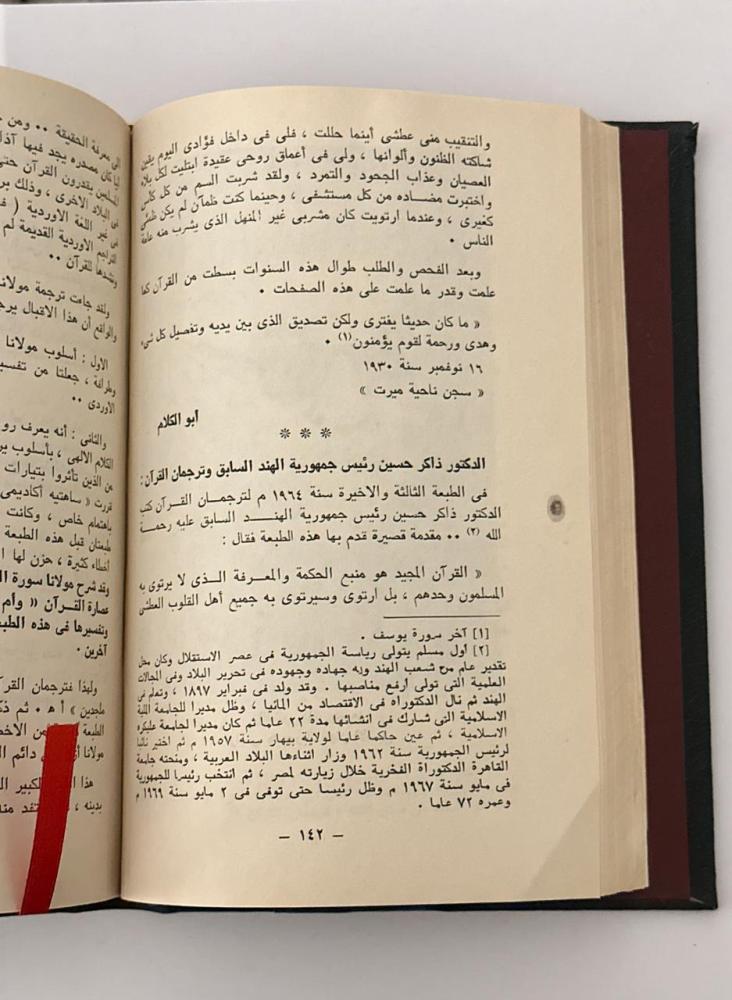 والتنقيب منى عطشى أينما حللت ، فلى فى داخل فؤادى اليوم يقين
شاكته الظنون وألوانها ، ولى فى أعماق روحى عقيدة ابتليت لكل بلاء
العصيان وعذاب الجحود والتمرد ، ولقد شربت السم من كل كأس
واختبرت مضاده من كل مستشفى ، وحينما كنت ظمآن لم يكن ظمئى
كغيرى ، وعندما ارتويت كان مشربى غير المنهل الذى يشرب منه عامة
الناس ٠
وبعد الفحص والطلب طوال هذه السنوات بسطت من القرآن كما
علمت وقدر ما علمت على هذه الصفحات ٠
« ما كان حديثا يفترى ولكن تصديق الذى بين يديه وتفصيل كل شىء
وهدى ورحمة لقوم يؤمنون(١) ٠
١٦ نوفمبر سنة ١٩٣٠
« سجن ناحية ميرت »
أبو الكلام
* * *
الدكتور ذاكر حسين رئيس جمهورية الهند السابق وترجمان القرآن :
فى الطبعة الثالثة والاخيرة سنة ١٩٦٤ م لترجمان القرآن كتب
الدكتور ذاكر حسين رئيس جمهورية الهند السابق عليه رحمة
الله (٢) ٠٠ مقدمة قصيرة قدم بها هذه الطبعة فقال :
« القرآن المجيد هو منبع الحكمة والمعرفة الذى لا يرتوى به
المسلمون وحدهم ، بل ارتوى وسيرتوى به جميع أهل القلوب العطشى
[١] آخر سورة يوسف .
[٢] أول مسلم يتولى رياسة الجمهورية فى عصر الاستقلال وكان محل
تقدير عام من شعب الهند وله جهاده وجهوده فى تحرير البلاد وفى المجالات
العلمية التى تولى أرفع مناصبها . وقد ولد فى فبراير ١٨٩٧ ، وتعلم فى
الهند ثم نال الدكتوراة فى الاقتصاد من المانيا ، وظل مديرا للجامعة الملية
الاسلامية التى شارك فى انشائها مدة ٢٢ عاما ثم كان مديرا لجامعة عليكره
الاسلامية ، ثم عين حاكما عاما لولاية بيهار سنة ١٩٥٧ م ثم اختير نائبا
لرئيس الجمهورية سنة ١٩٦٢ وزار اثناءها البلاد العربية ، ومنحته جامعة
القاهرة الدكتوراة الفخرية خلال زيارته لمصر ، ثم انتخب رئيسا للجمهورية
فى مايو سنة ١٩٦٧ م وظل رئيسا حتى توفى فى ٢ مايو سنة ١٩٦٩ م
وعمره ٧٢ عاما .
– ١٤٢ –
الى معرفة الحقيقة ٠٠ ومن
مصدره يجد فيها
المسلمين يقدرون القرآن حتى
فى البلاد الاخرى ، وذلك
فى غير اللغة الأوردية (
التراجم الأوردية القديمة لم
للقرآن ٠٠
ولقد جاءت ترجمة مولانا
والواقع أن هذا الاقبال
الأول : أسلوب مولانا
وطرافة ، جعلتا من
الأوردى ٠٠
والثانى : أنه يعرف
الكلام الالهى ، بأسلوب
من الذين تأثروا بتيارات
قررت « ساهتيه أكاديمى
باهتمام خاص ، وكانت
طبعتان قبل هذه الطبعة
أخطاء كثيرة ، حزن لها
وقد شرح مولانا سورة
عصارة القرآن « وأم
وتفسيرها فى هذه
آخرين .
ولهذا فترجمان
ملحدين » أ هـ ٠ ثم
الطبعة من
مولانا دائم
هذا الكبير
بدينه ،